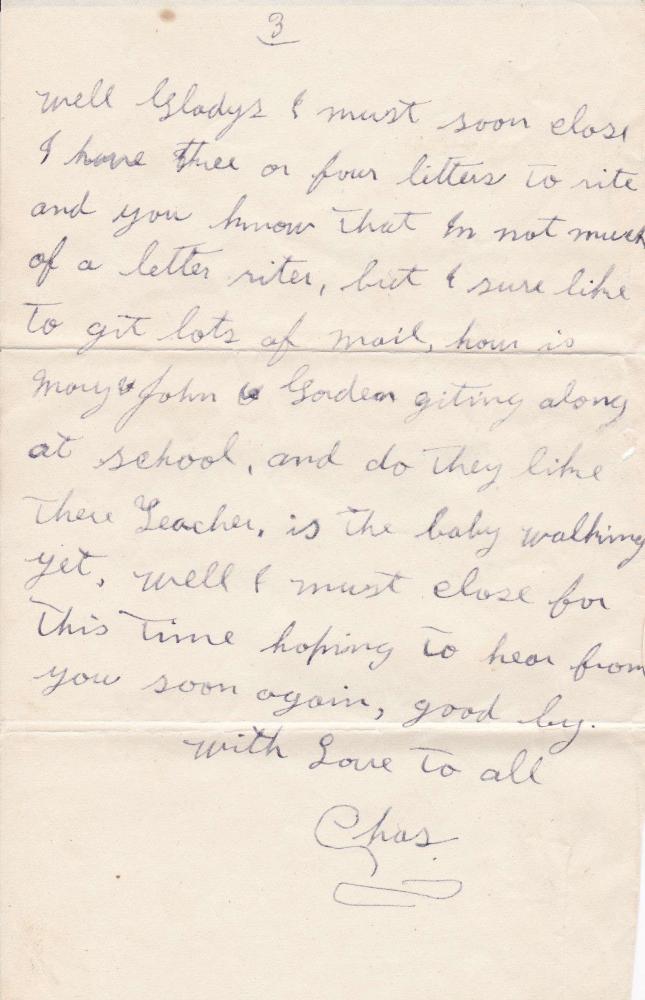 3
well Gladys I must soon close
I have three or four letters to rite
and you know that Im not much
of a letter riter, but I sure like
to git lots of mail, how is
Mary & John & Gorden giting along
at school, and do they like
there Teacher, is the baby walking
yet, well I must close for
this time hoping to hear from
you soon again, good by.
with Love to all
Chas.